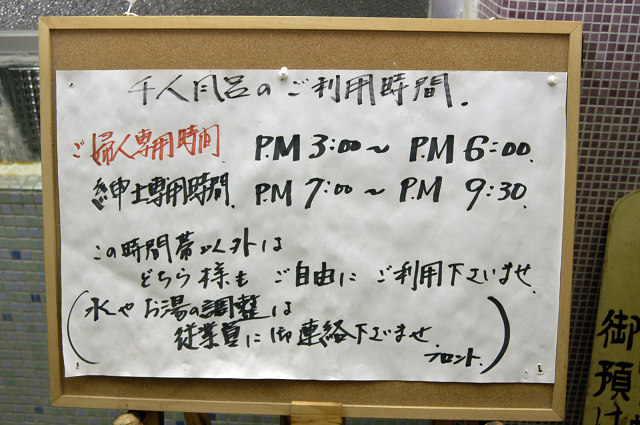 千人風呂のご利用時間.
ご婦人専用時間 P.M 3:00〜 P.M 6:00.
紳士専用時間. P.M 7:00〜 P.M 9:30
この時間帯以外は
どちら様も ご自由に ご利用下さいませ.
(水やお湯の調整は
従業員に御連絡下さいませ.
フロント.)
御預け